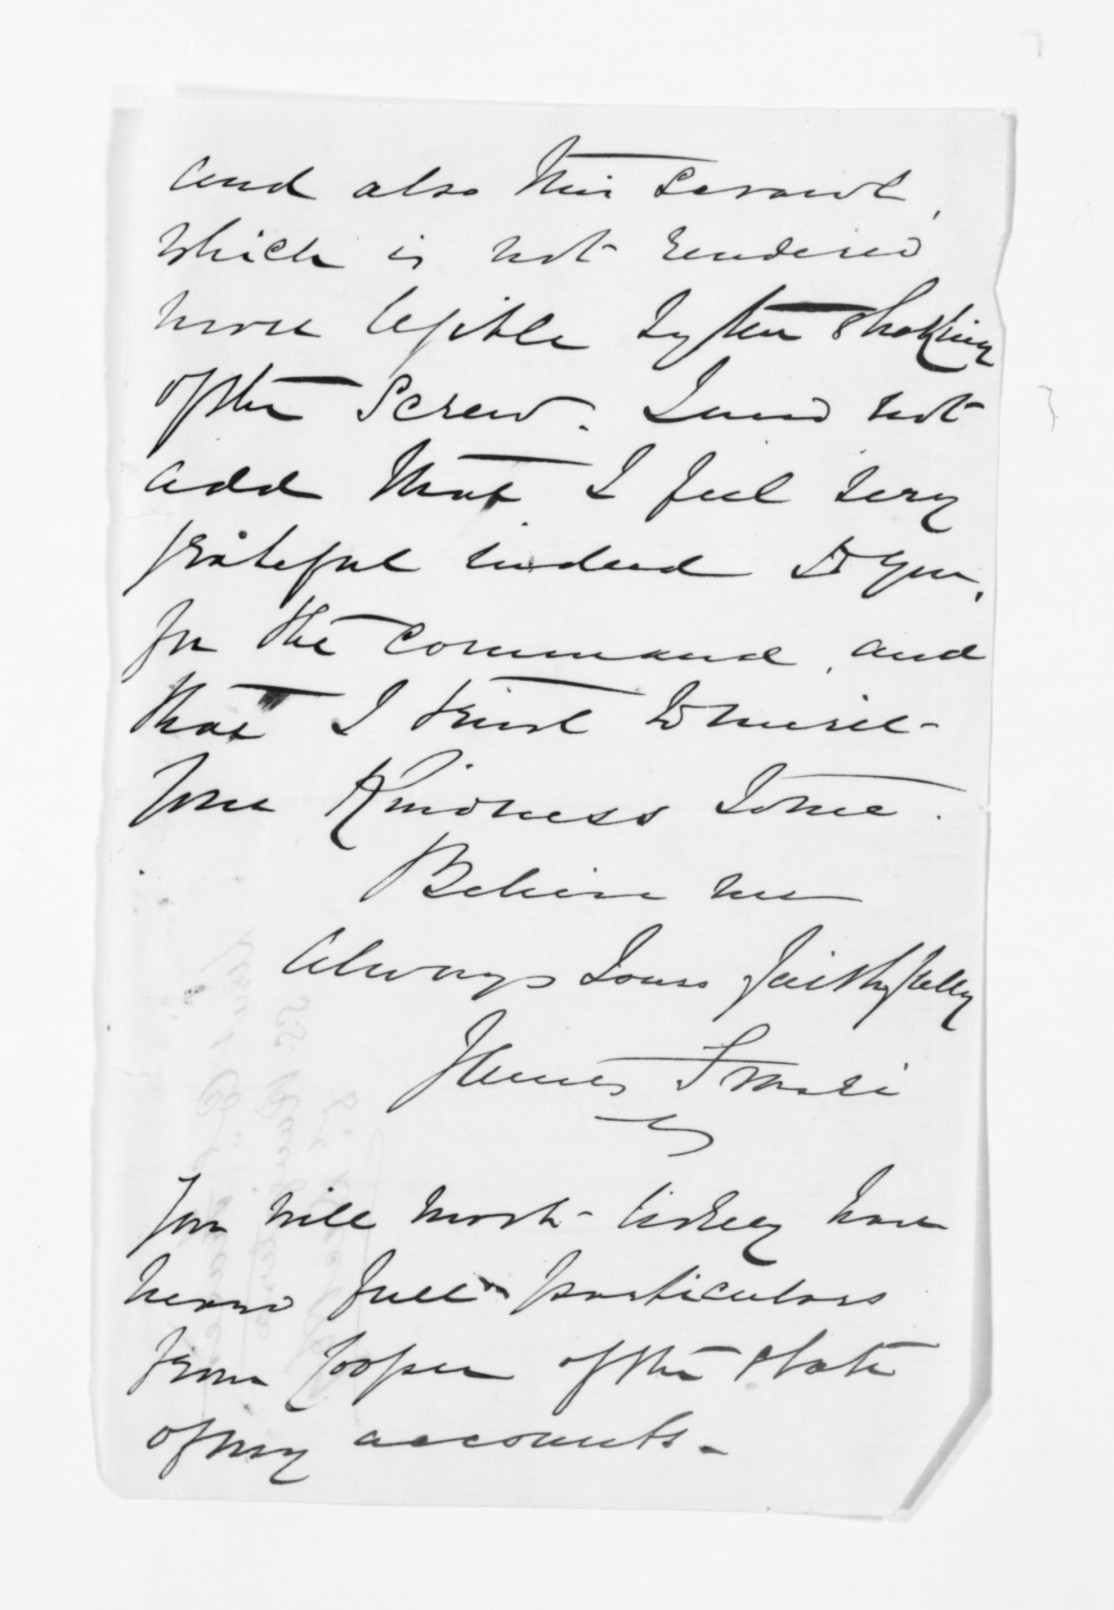 and also this scrawl,
which is not rendered
more legible by the shaking
of the Screw. I need not
add that I feel very
grateful indeed to you,
for the command, and
that I trust to merit
your Kindness to me.
Believe me
Always Yours faithfully
James
You will most likely have
heard full particulars
from Cooper of the state
of my accounts.